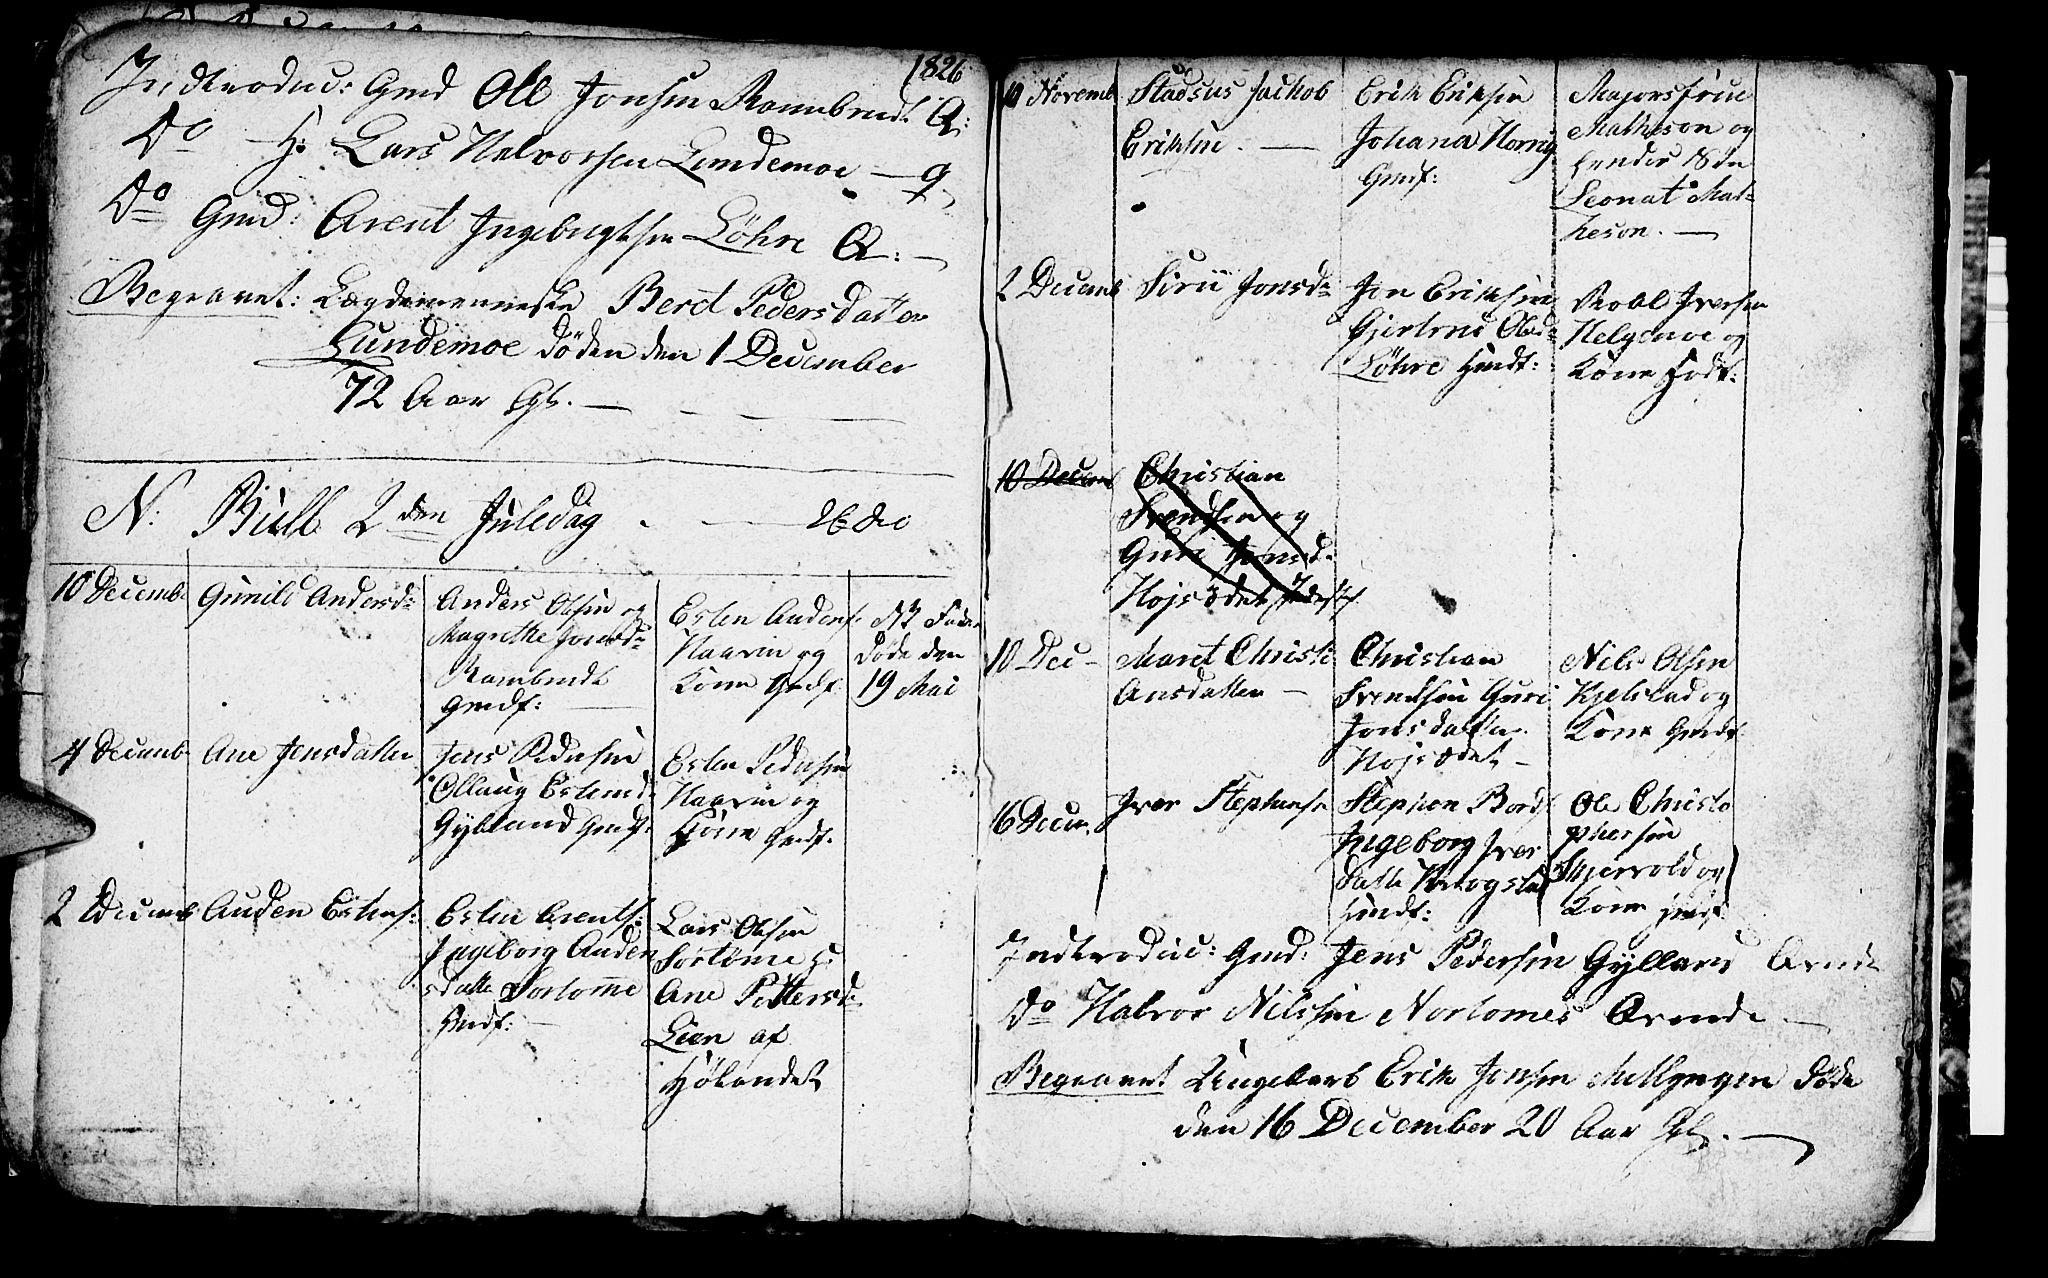 1826
Indtroduc: Gmd Ole Jonsen Rambredt Q:
Do H: Lars Halvorsen Lundemoe — Q
Do Gmd: Arent Ingebrigtsen Löhre Q: —
Begravet: Lægdemenneske Beret Pedersdatter
Lundemoe döde den 1 December
72 Aar Gl. —
N: Bull 2den Juledag . — 26 De
10 Decemb Gunild Andersd:
Anders Olsen og
Magrethe Jonsd:
Rambredt
Gmdf:
Esten Anders:
Haarin og
Kone Gmdf:
NB Fader
döde den
19 Mai
4 Decemb Ane Jensdatter
Jens Pedersen
Ollaug Estensd:
Gylland Gmdf:
Esten Pedersen
Haarin og
Kone Gmdf:
2 Decemb Auden Estens:
Esten Arents:
Ingeborg Auden
sdatter Sortome
Hmdf: —
Lars Olsen
Sortome H:
Ane Pettersd:
Lien af
Hölandet
10 Novemb Jackob
Eriksen. —
Erik Eriksen
Johana Hornig
Gmdf:
Majorsfrue
Matheson og
hendes Sön
Leonat Mat=
heson. —
2 Decemb Sirii Jonsd:
Jon Eriksen
Gjertrud Olsd:
Löhre Hmdf:
Roald Iversen
Helgemoe og
Kone Hmdf:
10 Decemb Christian
Svendsen og
Guri Jonsd:
Hojsödet
10 Dec — Marit Christi
ansdatter —
Christian
Svendsen Guri
Jonsdatter
Hojsödet —
Nils Olsen
Kjelstad og
Kone Gmdf:
16 Decem. Iver Stephens:
Stephen Bords:
Ingeborg Iver
datter Krogstad
Hmdf:
Ole Christo
phersen
Skjervold og
Kone Hmdf:
Indtroduc: Gmd: Jens Pedersen Gylland Arende
Do Halvor Nilssen Nortomes Arende —
Begravet Ungekarl Erik Jonsen döde
den 16 December 20 Aar Gl. —